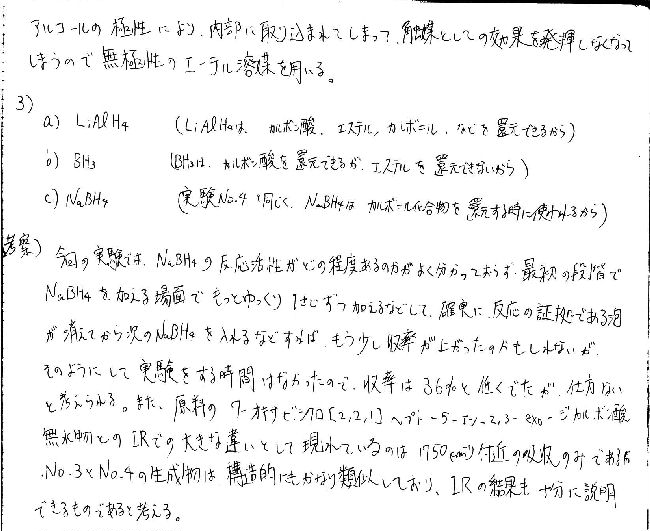 アルコールの極性により、内部に取り込まれてしまって、触媒としての効果を発揮しなくなって
しまうので無極性のエーテル溶媒を用いる。
3)
a) LiAlH4 (LiAlH4は、カルボン酸、エステル、カルボニル、などを還元できるから)
b) BH3 (BH3は、カルボン酸を還元できるが、エステルを還元できないから)
c) NaBH4 (実験No.4と同じく、NaBH4はカルボニル化合物を還元する時に使われるから)
考察) 今回の実験では、NaBH4の反応活性がどの程度あるのかがよく分かっておらず、最初の段階で
NaBH4を加える場面でもっとゆっくり1さじずつ加えるなどして、確実に反応の証拠である泡
が消えてから次のNaBH4を入れるなどすれば、もう少し収率が上がったのかもしれないが、
そのようにして実験をする時間はなかったので、収率は36%と低くでたが、仕方ない
と考えられる。また、原料の7-オキサビシクロ[2,2,1]ヘプト-5-エン-2,3-exo-ジカルボン酸
無水物とのIRでの大きな違いとして現れているのは1750cm⁻¹付近の吸収のみであるが
、No.3とNo.4の生成物は構造的にもかなり類似しており、IRの結果も十分に説明
できるものであると考える。